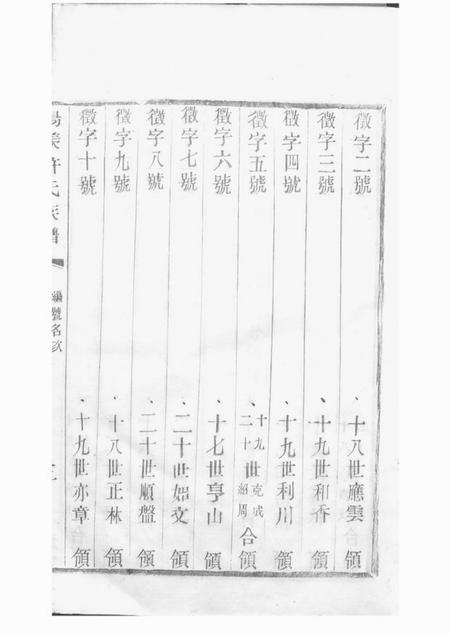 徵字二號 十八世應雲 領
徵字三號 十九世和香 領
徵字四號 十九世利川 領
徵字五號 十九 二十 世 克成 紹周 合領
徵字六號 十七世亨山 領
徵字七號 二十世 文 領
徵字八號 二十世順盤 領
徵字九號 十八世正林 領
徵字十號 十九世亦章 領
許氏族譜 編號名次